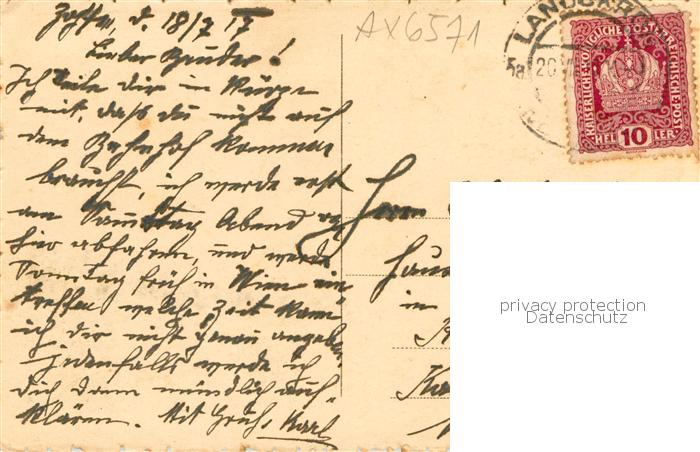 d. 18/7 17
AX6571
Lieber Bruder!
Ich teile dir in Kürze
mit, daß du nicht auf
dem Bahnhof kommen
brauchst, ich werde erst
am Samstag Abend von
hier abfahren, und werde
Sonntag früh in Wien ein-
treffen welche Zeit kann
ich dir nicht genau angeben,
jedenfalls werde ich
dich dann mündlich auf-
klären. Mit Gruß, Karl
Herrn
in
LANDSKR
5a 20
KAISERLICHE KÖNIGLICHE ÖSTERREICHISCHE POST
HELLER
10
privacy protection
Datenschutz